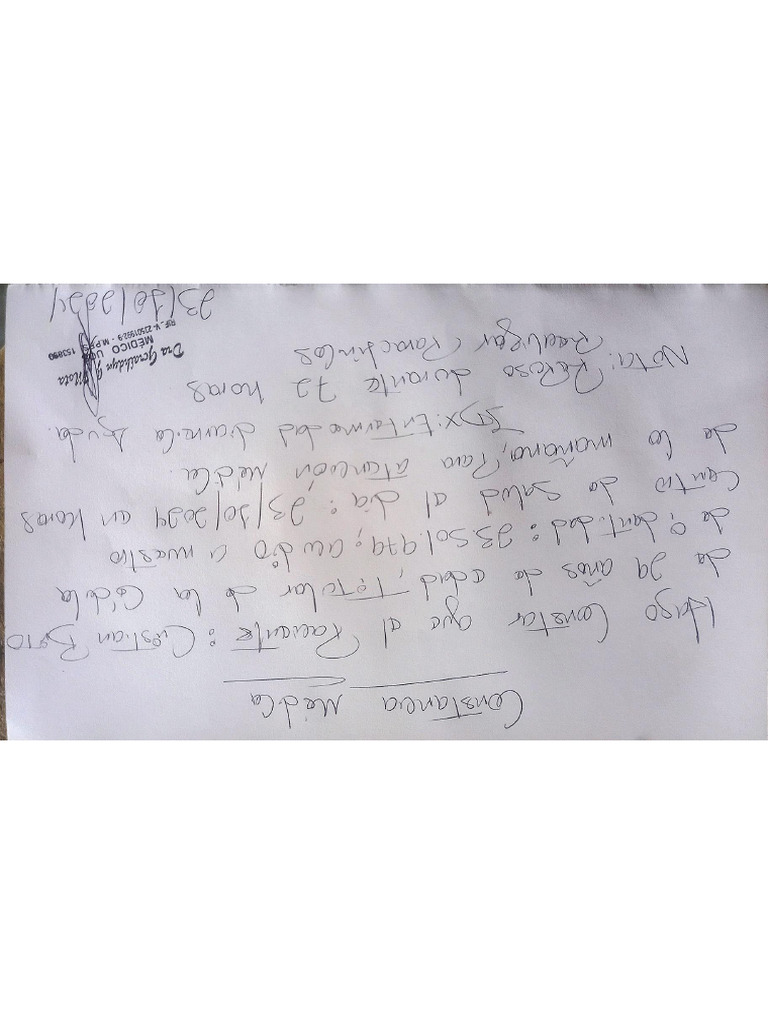 Constancia Médica
Hago Constar que el Paciente: Cristian Brito
de 29 años de edad, Titular de la Cédula
de identidad: 23.501.974; acudio a nuestro
Centro de salud el día: 23/10/2024 en horas
de la mañana, Para atención Médica.
IDX: Enfermedad diarreica Aguda.
Nota: Reposo durante 72 horas
Realizar Paraclinicos
Dra Geraldyn Mota
MÉDICO
153890
23/10/2024